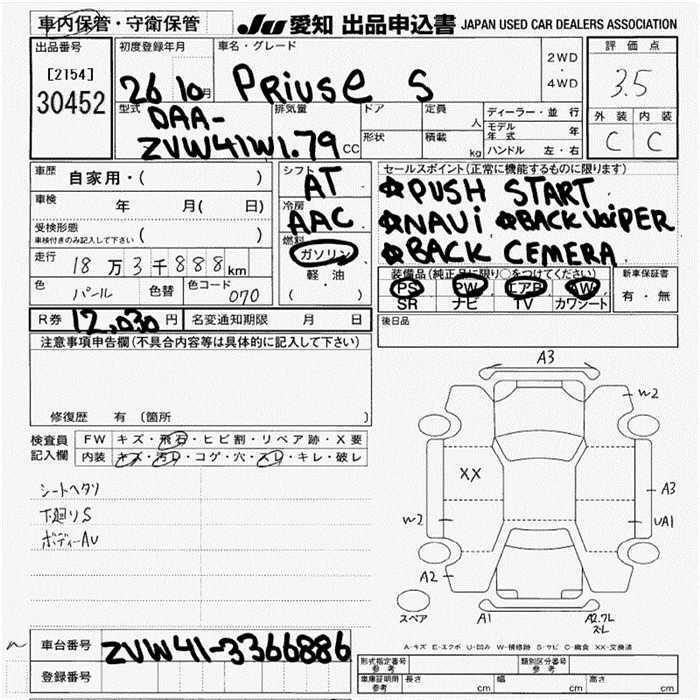 車内保管・守衛保管
JU 愛知 出品申込書 JAPAN USED CAR DEALERS ASSOCIATION
出品番号
[2154]
30452
初度登録年月
26 10 月
車名・グレード
PRiUSe S
2WD
・
4WD
評価点
3.5
外装 内装
C C
型式
DAA-
ZVW41W
排気量
1.79 CC
ドア
形状
定員
人
積載
kg
ディーラー・並行
モデル年式 年
ハンドル 左・右
車歴
自家用・( )
車検 年 月( 日)
受検形態
車検付きのみ記入して下さい ( )
走行 18万3千888km
色 パール 色替 色コード 070
シフト
AT
冷房
AAC
燃料
ガソリン
軽油
( ・ )
セールスポイント(正常に機能するものに限ります)
☆PUSH START
☆NAVi ☆BACK WiPER
☆BACK CEMERA
装備品(純正品に限り○をつけてください)
PS PW エアB AW
SR ナビ TV カワシート
新車保証書
有・無
R券 12,030円 名変通知期限 月 日
後日品
注意事項申告欄(不具合内容等は具体的に記入して下さい)
修復歴 有 〔箇所
検査員
記入欄
FW キズ・飛石・ヒビ割・リペア跡・X要
内装 キズ・汚レ・コゲ・穴・スレ・キレ・破レ
シートヘタリ
下廻りS
ボディーAU
A3
W2
XX
A3
W2
UA1
A2
スペア
A1
A2.7L
スレ
A-キズ E-エクボ U-凹み W-補修跡 S-サビ C-腐食 XX-交換済
車台番号 ZVW41-3366886
登録番号
形式指定番号
参考
類別区分番号
参考
車庫証明用
参考
長さ cm 幅 cm 高さ cm